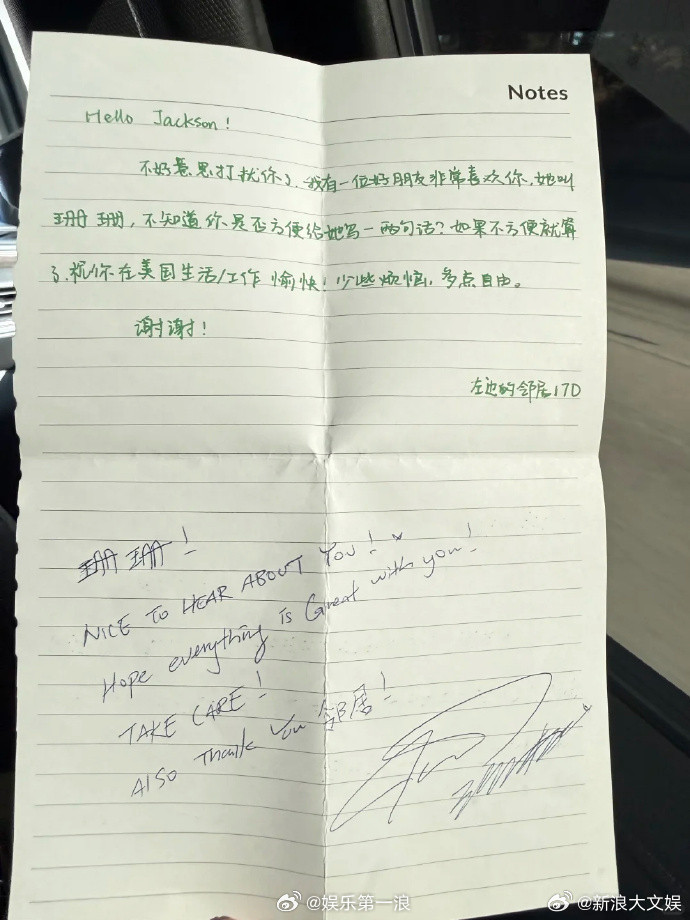 Notes
Hello Jackson!
不好意思打扰你了、我有一位好朋友非常喜欢你,她叫
珊珊,不知道你是否方便给她写一两句话?如果不方便就算
了.祝你在美国生活/工作愉快!少些烦恼,多点自由。
谢谢!
左边的邻居17D
珊珊!
NICE TO HEAR ABOUT YOU!
Hope everything is Great with you!
TAKE CARE!
Also Thank You 邻居!
@娱乐第一浪
@新浪大文娱